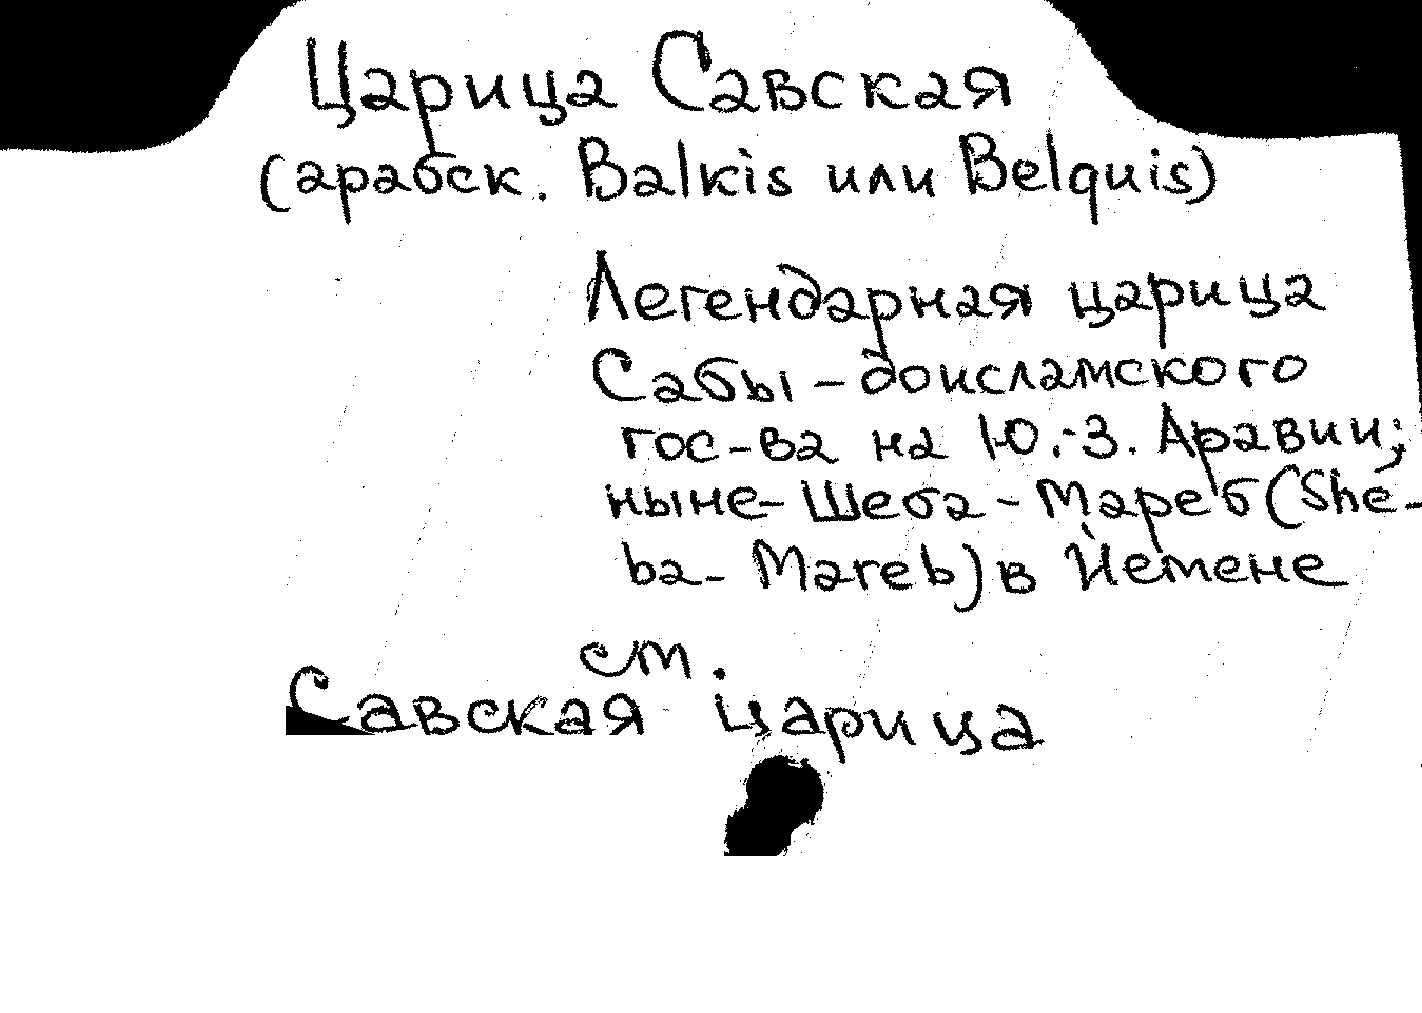 Царица Савская
(арабск. Balkis или Belquis)
Легендарная царица
Сабы – доисламского
гос-ва на Ю.-З. Аравии;
ныне – Шеба – Мареб (She-
ba - Mareb) в Йемене
см.
Савская царица